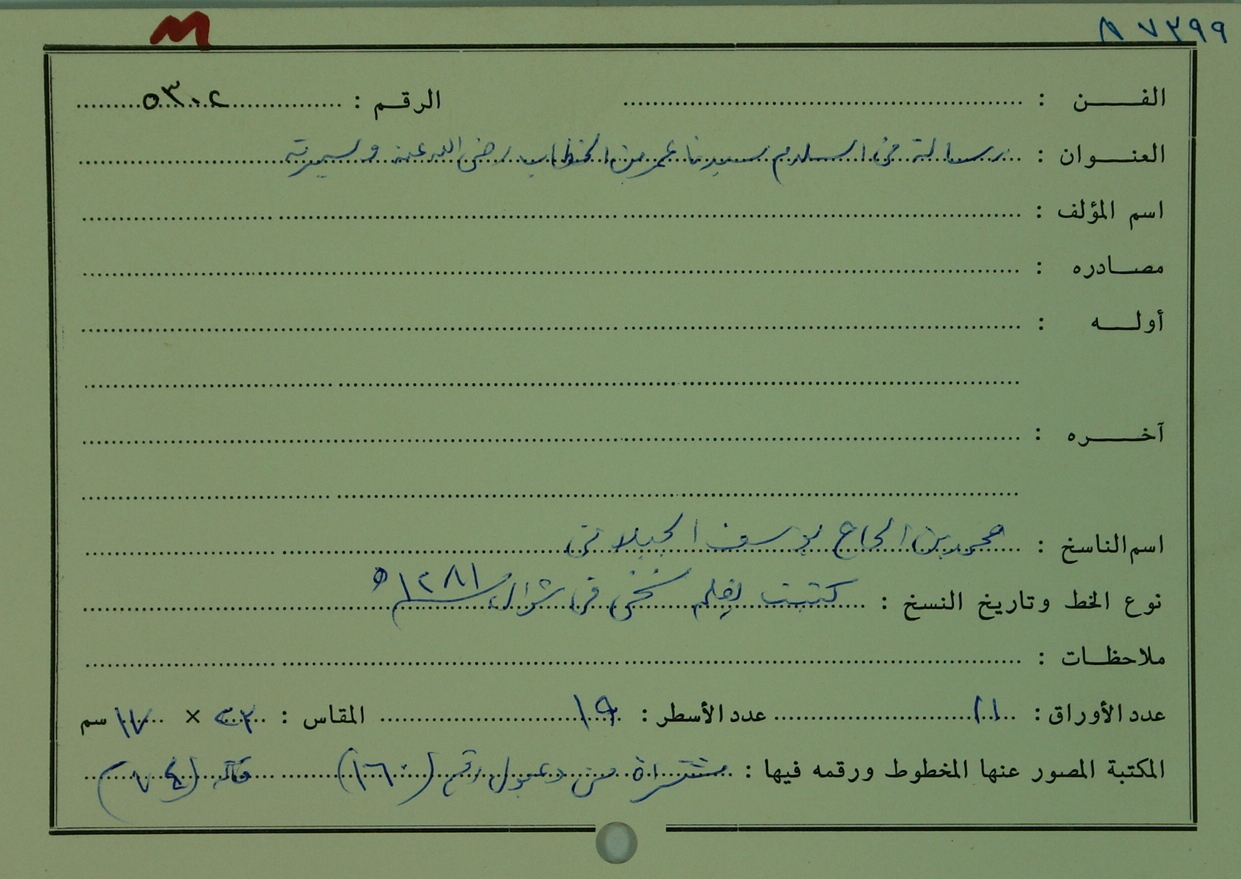 M
٨٧٢٩٩
الفن : الرقم : ٥٣٠٢
العنوان : رسالة في اسلام سيدنا عمر بن الخطاب رضي الله عنه وسيرته
اسم المؤلف :
مصادره :
أوله :
آخره :
اسم الناسخ : محمد بن الحاج يوسف الجيلاني
نوع الخط وتاريخ النسخ : كتبت بقلم نسخي في شوال سنة ١٢٨١ ه
ملاحظات :
عدد الأوراق : ١١ عدد الأسطر : ١٩ المقاس : ٢٣ × ١٧ سم
المكتبة المصور عنها المخطوط ورقمه فيها : مشتراة من دعبول رقم (١٦٠)